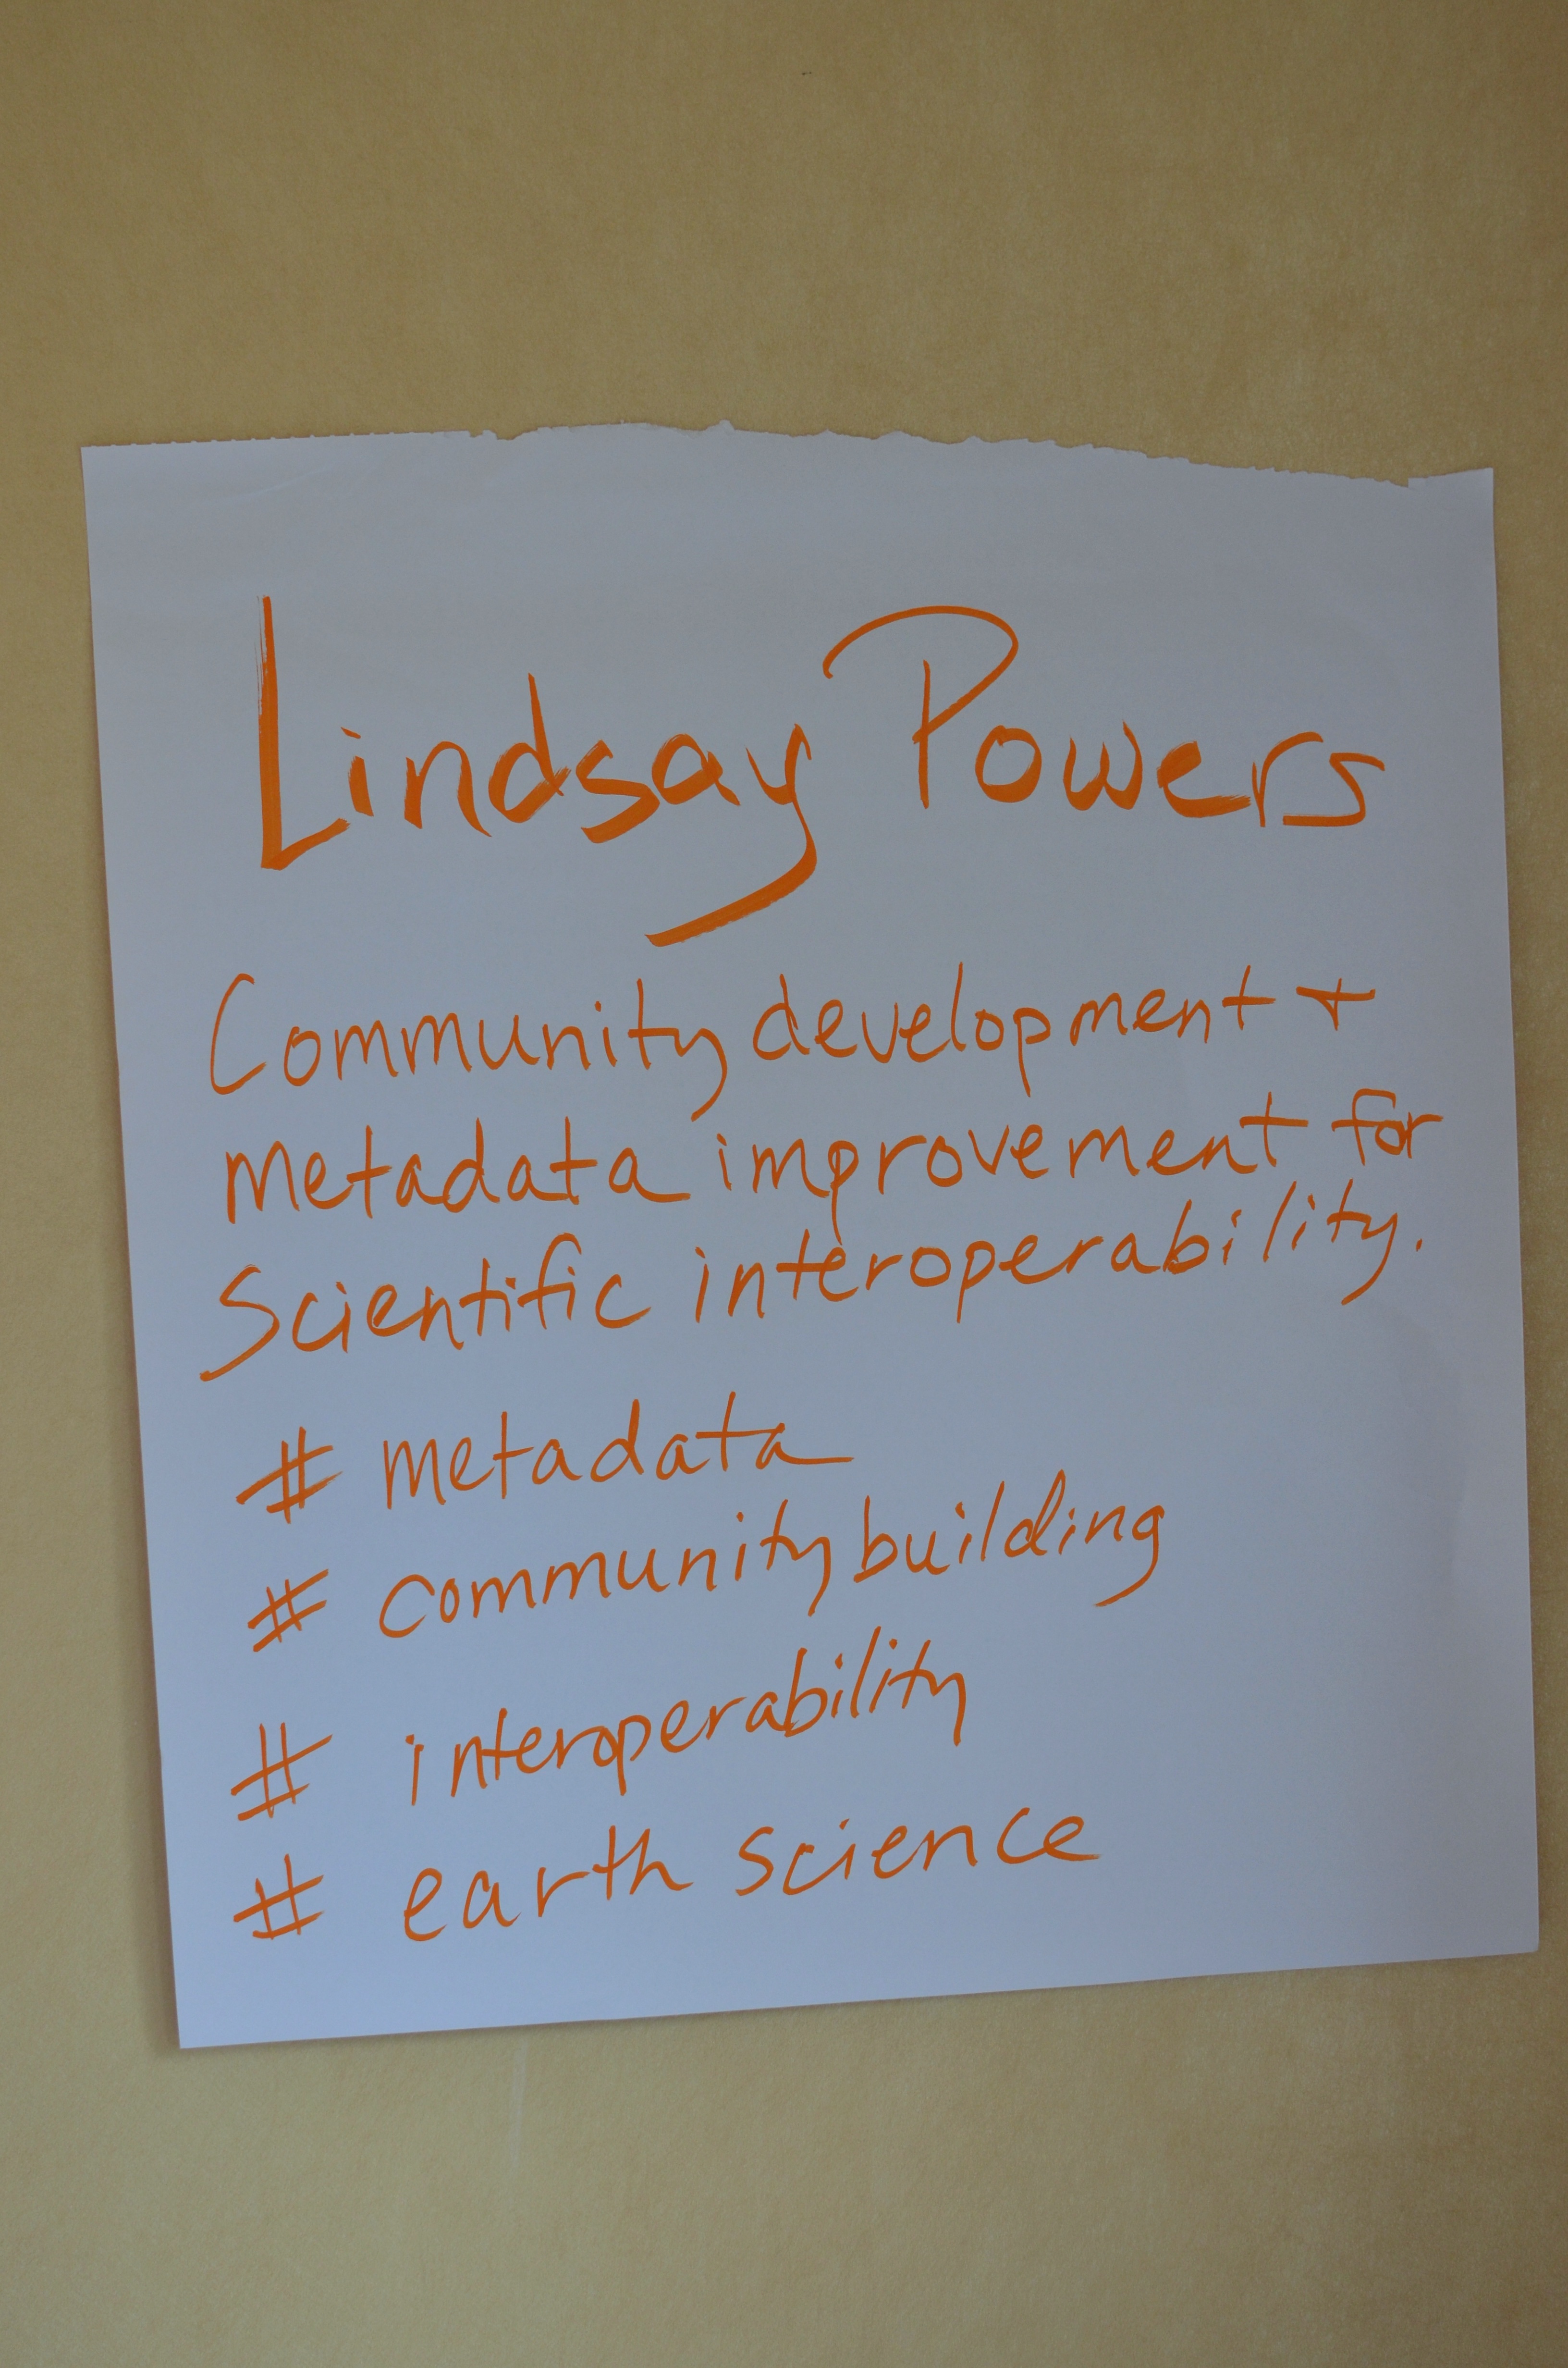 Lindsay Powers
Community development +
metadata improvement for
Scientific interoperability.
# metadata
# community building
# interoperability
# earth science